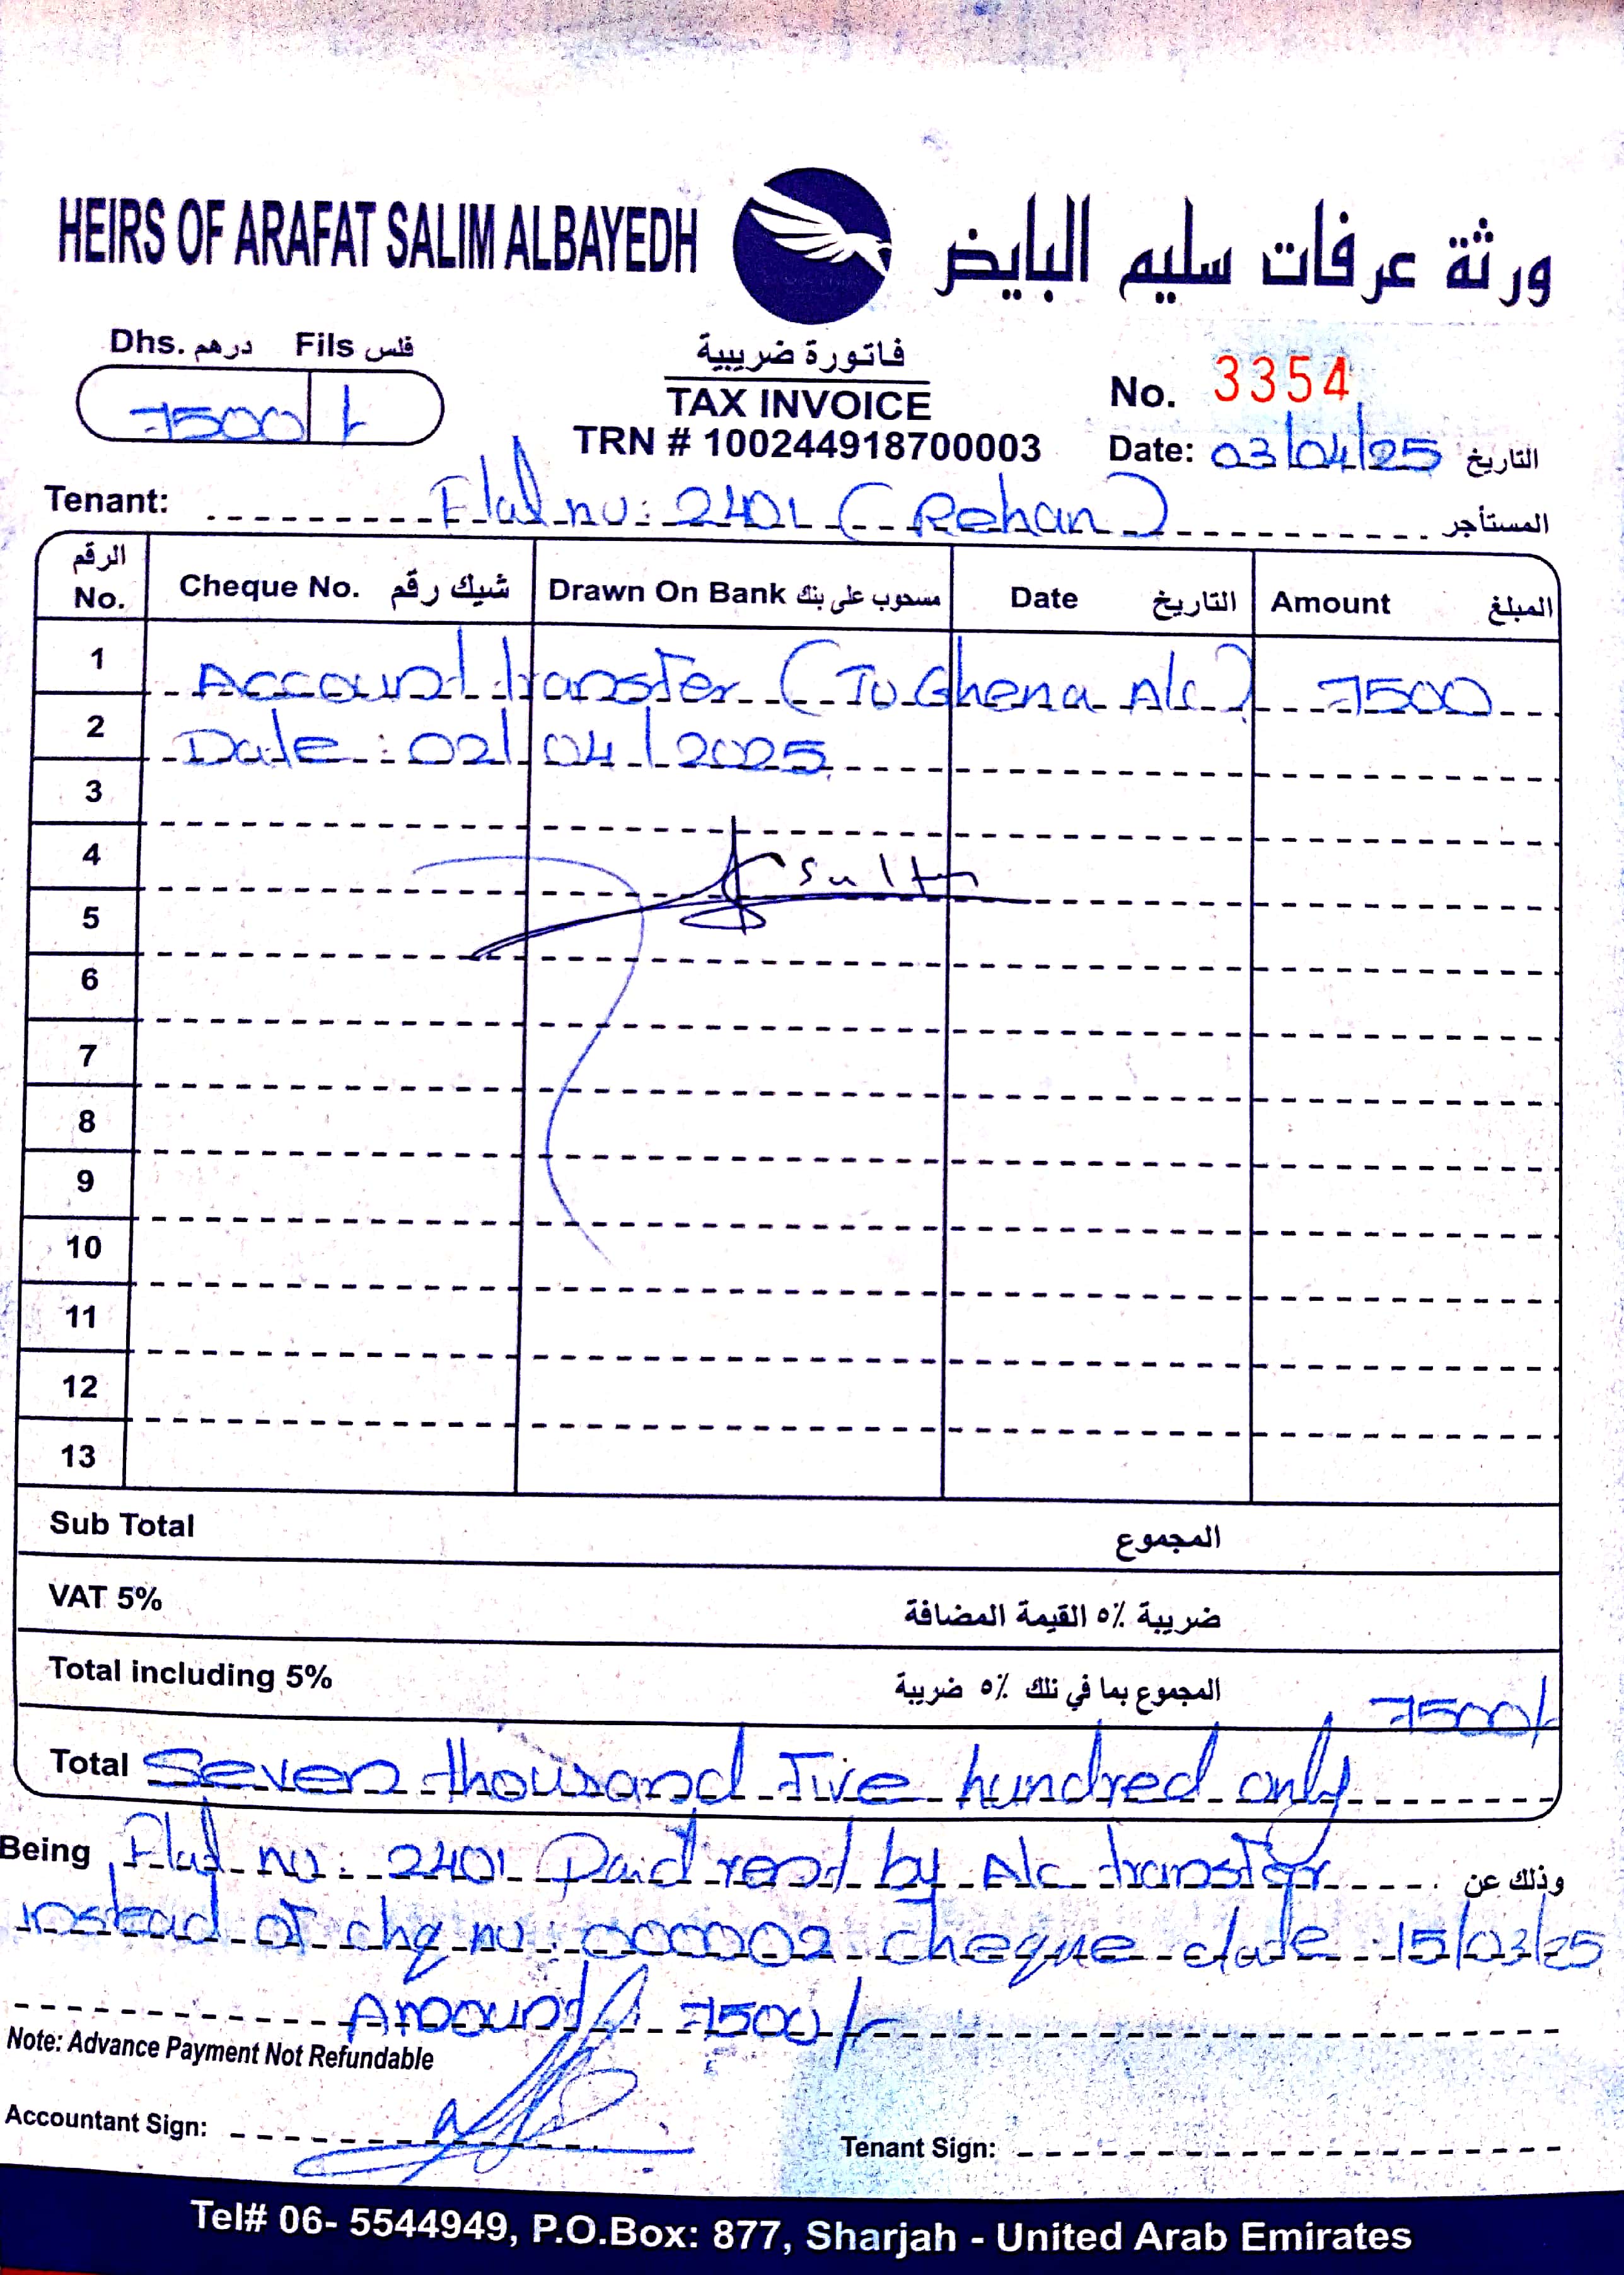 HEIRS OF ARAFAT SALIM ALBAYEDH ورثة عرفات سليم البايض
Dhs. درهم Fils فلس
7500 /-
فاتورة ضريبية
TAX INVOICE
TRN # 100244918700003
No. 3354
Date: 03/04/25 التاريخ
Tenant: Flat no: 2401 (Rehan) المستأجر
الرقم No. Cheque No. شيك رقم Drawn On Bank مسحوب على بنك Date التاريخ Amount المبلغ
1 Account transfer (To Ghena A/c) 7500
2 Date: 02/04/2025
3
4
5
6
7
8
9
10
11
12
13
Sub Total المجموع
VAT 5% ضريبة ٥٪ القيمة المضافة
Total including 5% المجموع بما في تلك ٥٪ ضريبة 7500/-
Total Seven thousand Five hundred only
Being Flat no: 2401 Paid rent by A/c transfer وذلك عن
instead of chq no: 000002 cheque date: 15/03/25
Amount 7500/-
Note: Advance Payment Not Refundable
Accountant Sign:
Tenant Sign:
Tel# 06- 5544949, P.O.Box: 877, Sharjah - United Arab Emirates